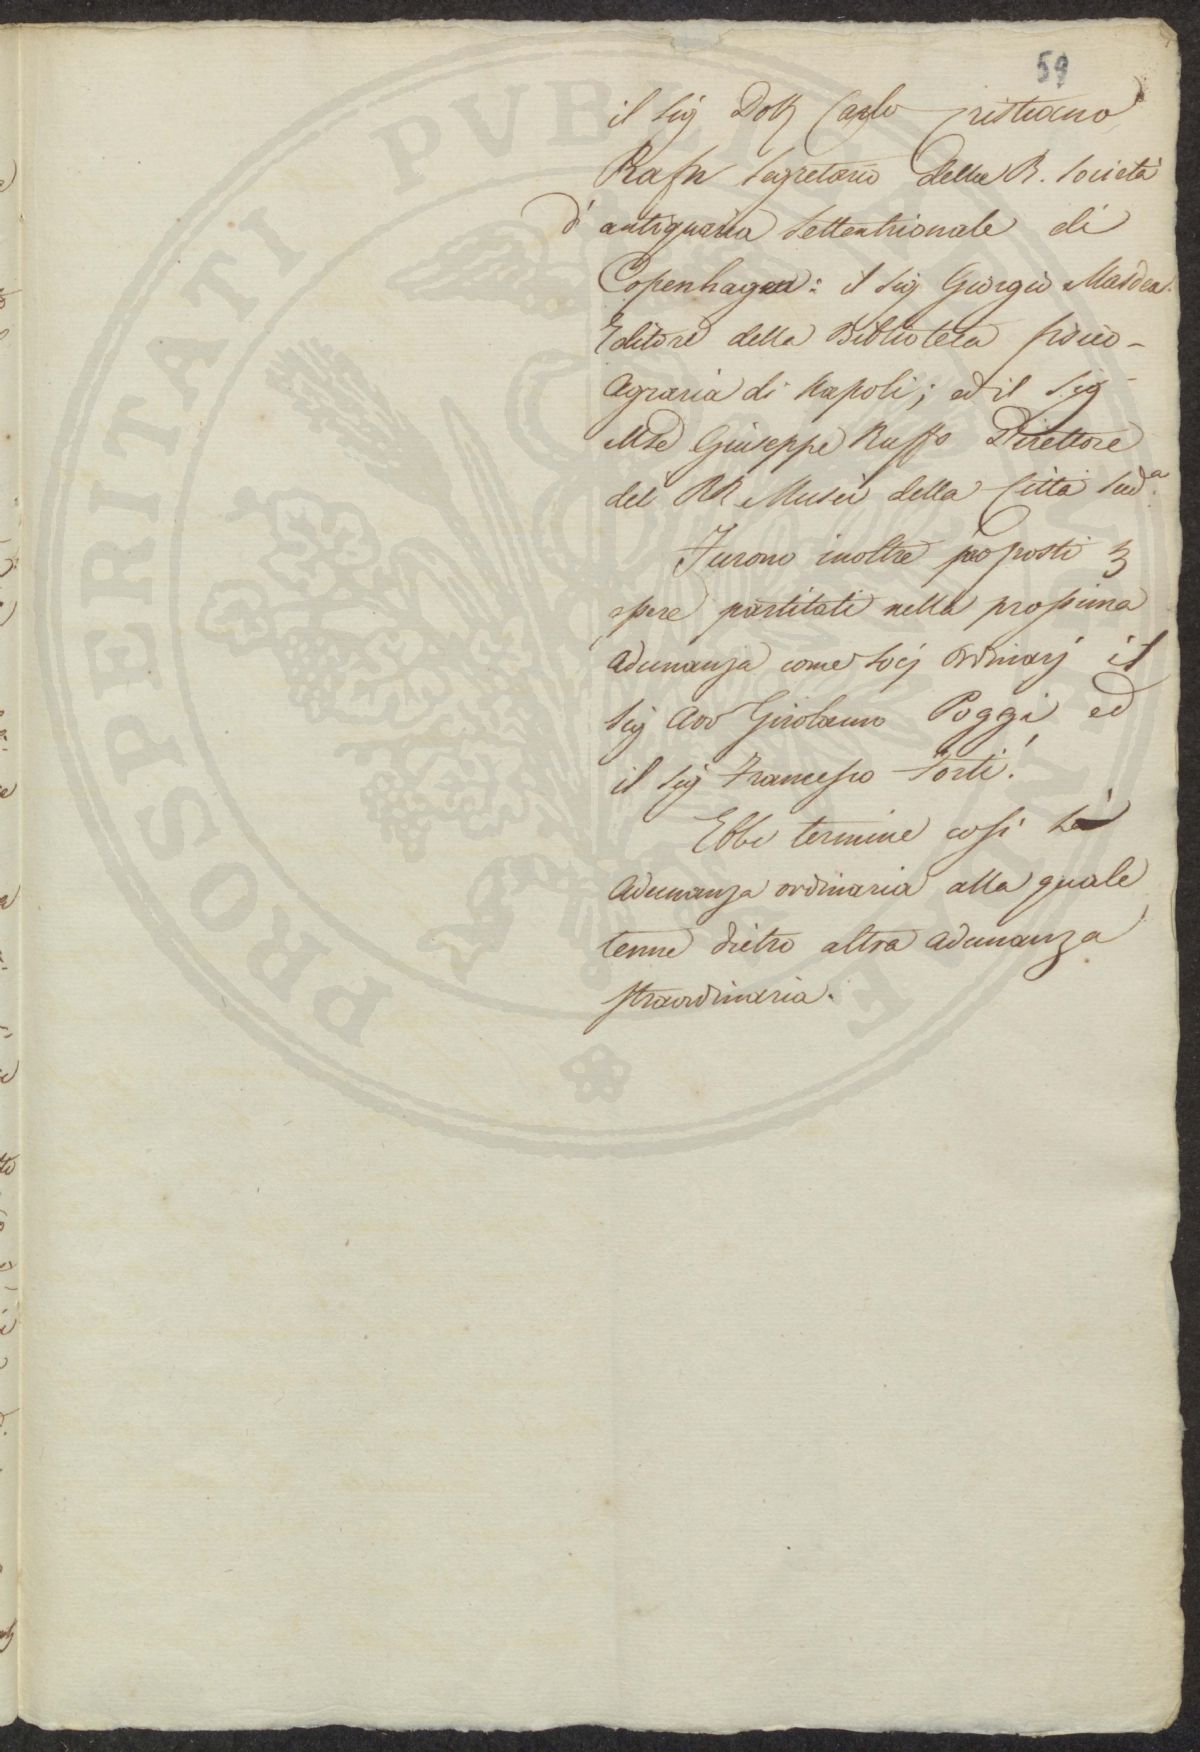 59
il Sig Dott Carlo Cristiano
Rafn Segretario della R. Società
d' antiquaria Settentrionale di
Copenhagen: il Sig Giorgio
Editore della Biblioteca fisico-
Agraria di Napoli; ed il Sig
Mse Giuseppe Ruffo Direttore
dei RR Musei della Città sudª.
Furono inoltre proposti p
essere partitati nella prossima
Adunanza come Socj Ordinarj il
Sig Avv Girolamo Poggi ed
il Sig Francesco Forti.
Ebbe termine così la
Adunanza ordinaria alla quale
tenne dietro altra Adunanza
straordinaria.
PROSPERITATI PVBLICAE AVGENDAE